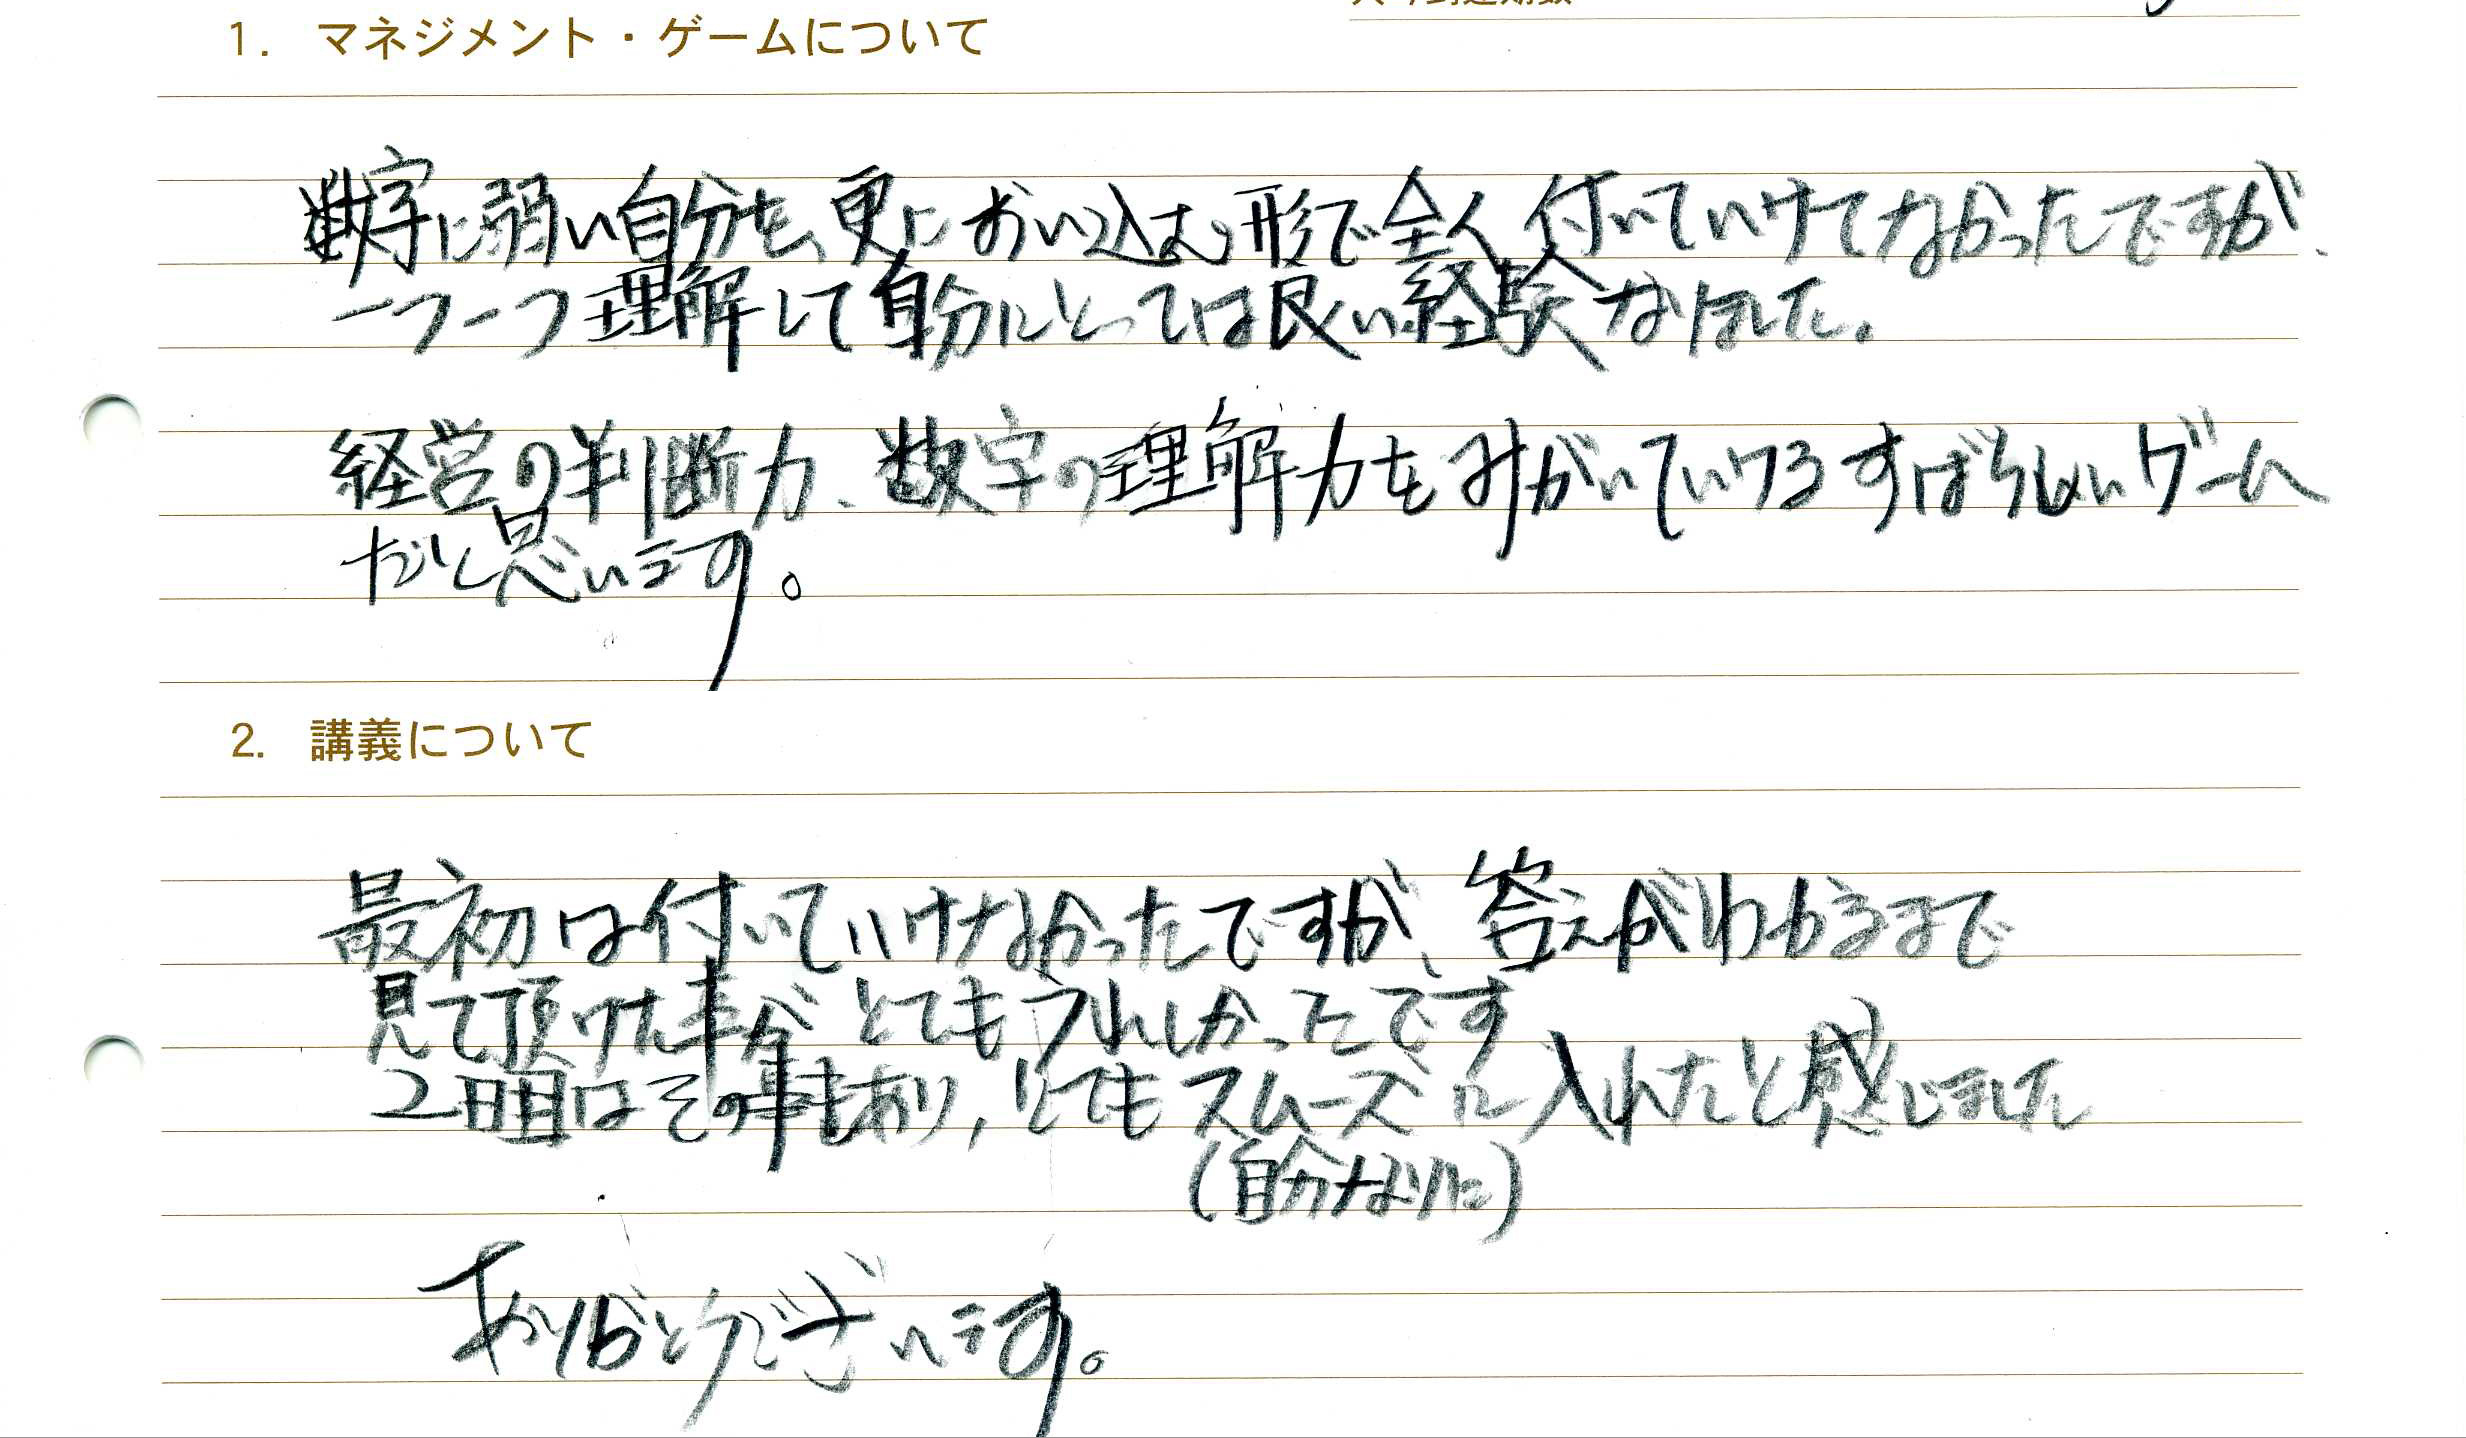 1. マネジメント・ゲームについて
数字に弱い自分を、更におい込む形で全く付いていけてなかったですが、
一つ一つ理解して自分にとっては良い経験なりました。
経営の判断力、数字の理解力をみがいていけるすばらしいゲーム
だと思います。
2. 講義について
最初は付いていけなかったですが、答えがわかるまで
見て頂けた事がとてもうれしかったです
2日目はその事もあり,とてもスムーズに入れたと感じました
(自分なりに)
ありがとうございます。